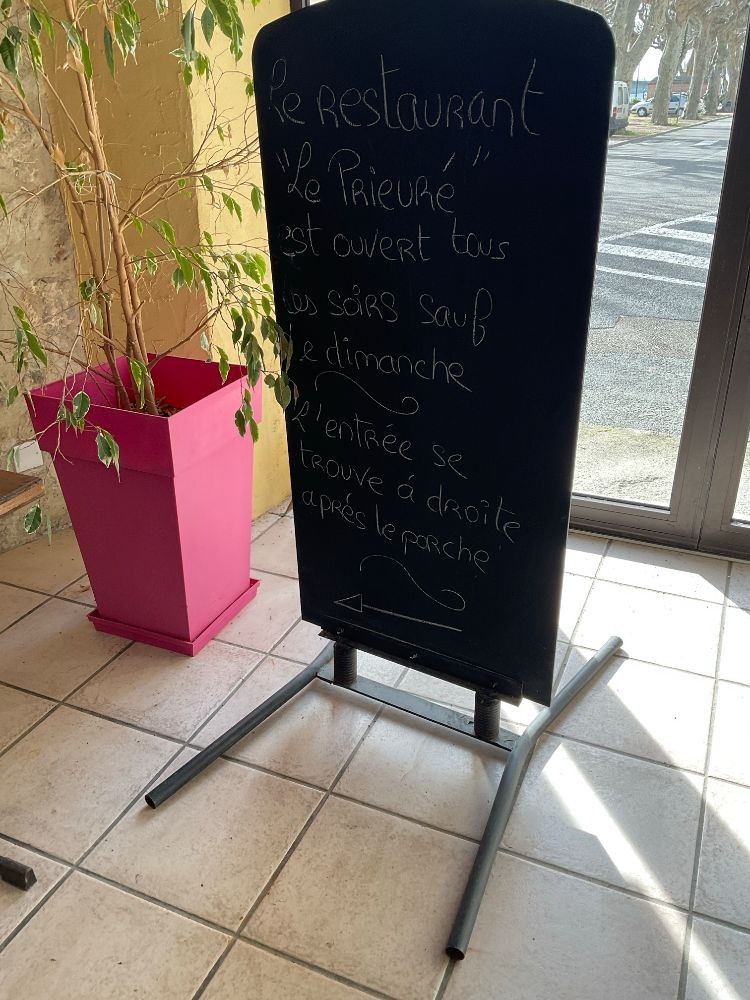 Le restaurant
"Le Prieuré"
est ouvert tous
les soirs sauf
le dimanche
L'entrée se
trouve à droite
après le porche